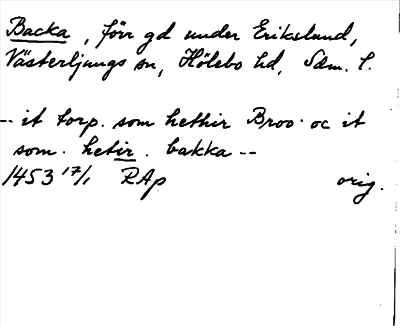 Backa, förr gd under Erikslund,
Västerljungs sn, Hölebo hd, Sdm. l.
-- it torp. som hethir Broo. oc it
som. hetir. bakka --
1453 17/1 RAp orig.